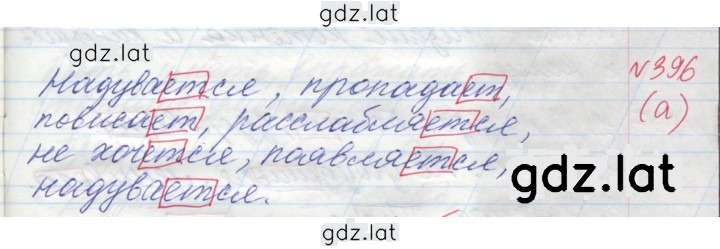 gdz.lat
gdz.lat
Надувается, пропадает,
№396
повисает, расслабляется,
(а)
не хочется, появляется,
gdz.lat
надувается.
gdz.lat